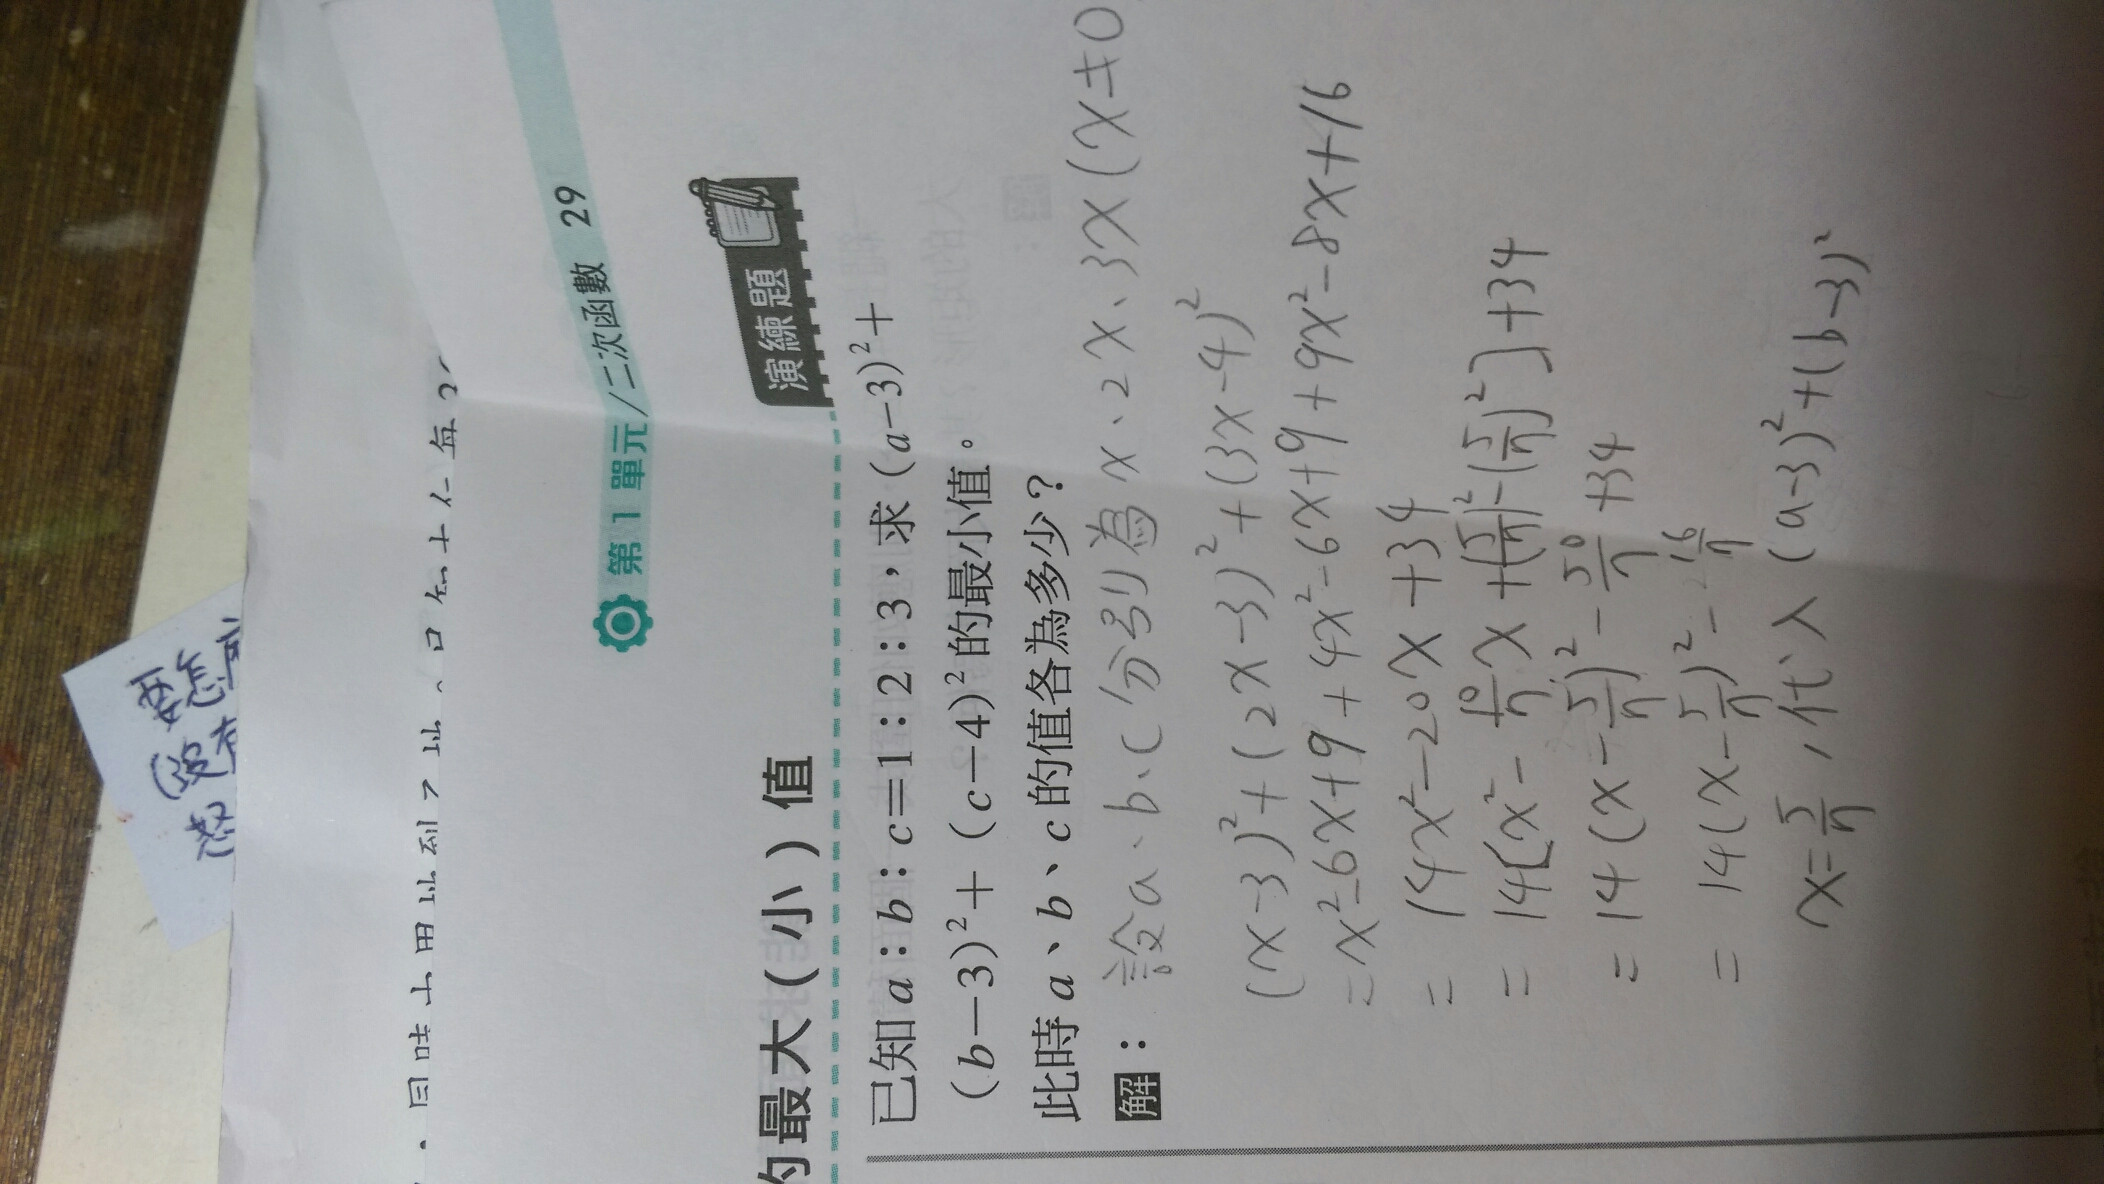 第1單元/二次函數 29
的最大(小)值
演練題
已知a:b:c=1:2:3,求(a-3)²+
(b-3)²+(c-4)²的最小值。
此時a、b、c的值各為多少?
解:設a、b、c分別為x、2x、3x(x≠0
(x-3)²+(2x-3)²+(3x-4)²
=x²-6x+9+4x²-6x+9+9x²-8x+16
=14x²-20x+34
=14[x²-10/7x+(5/7)²-(5/7)²]+34
=14(x-5/7)²-50/7+34
=14(x-5/7)²-16/7
x=5/7,代入(a-3)²+(b-3)²